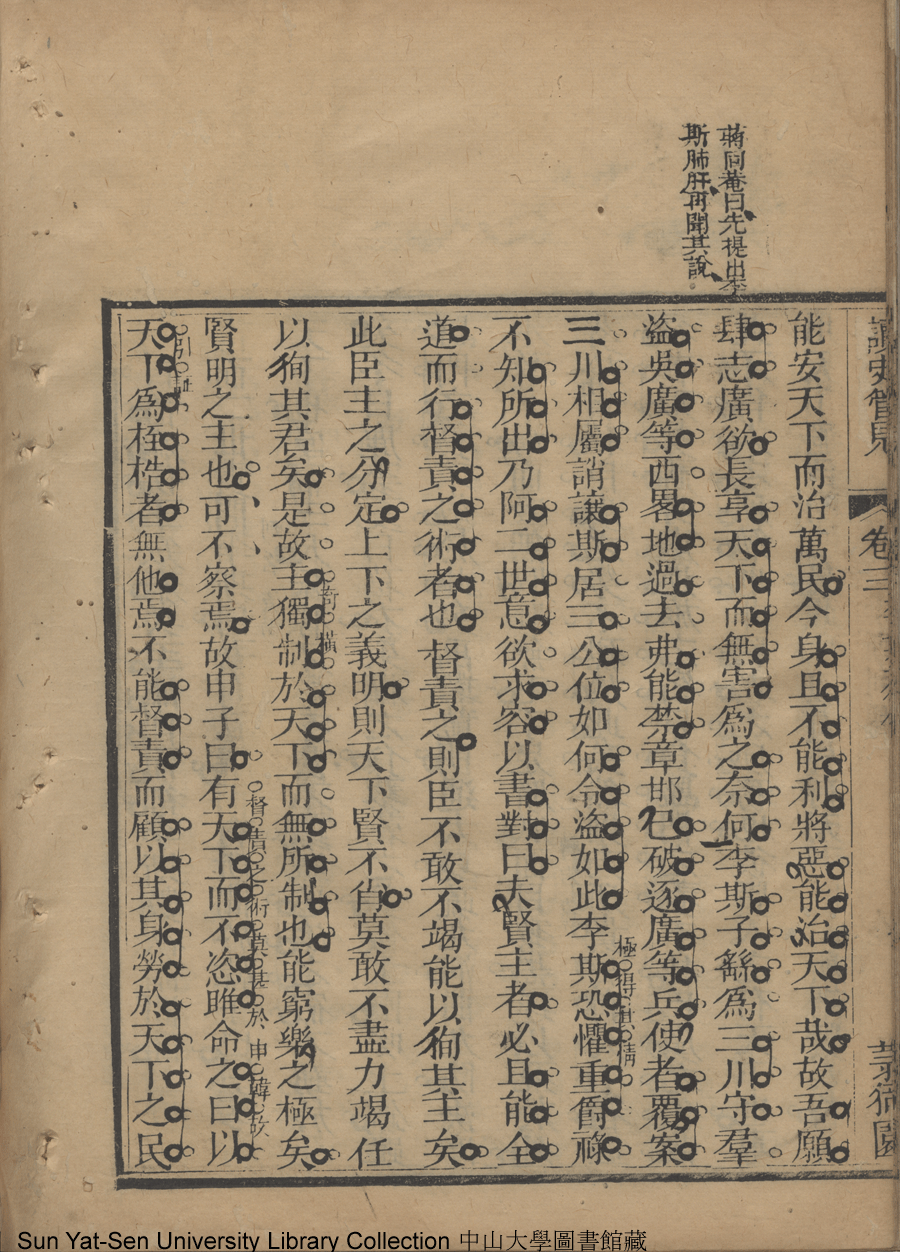 蔣同菴曰先提出李
斯肺肝再開其說
讀史管見
卷三
芥衛園
能安天下而治萬民今身且不能利將惡能治天下哉故吾願
肆志廣欲長享天下而無害爲之奈何李斯子繇爲三川守羣
盜吳廣等西畧地過去弗能禁章邯已破逐廣等兵使者覆案
三川相屬誚讓斯居三公位如何令盜如此李斯恐懼重爵祿
極得其情
不知所出乃阿二世意欲求容以書對曰夫賢主者必且能全
道而行督責之術者也督責之則臣不敢不竭能以徇其主矣
此臣主之分定上下之義明則天下賢不肖莫敢不盡力竭任
以徇其君矣是故主獨制於天下而無所制也能窮樂之極矣
奇橫
賢明之主也可不察焉故申子曰有天下而不恣睢命之曰以
督責之術莫甚於申韓故
引證
天下爲桎梏者無他焉不能督責而顧以其身勞於天下之民
Sun Yat-Sen University Library Collection 中山大學圖書館藏